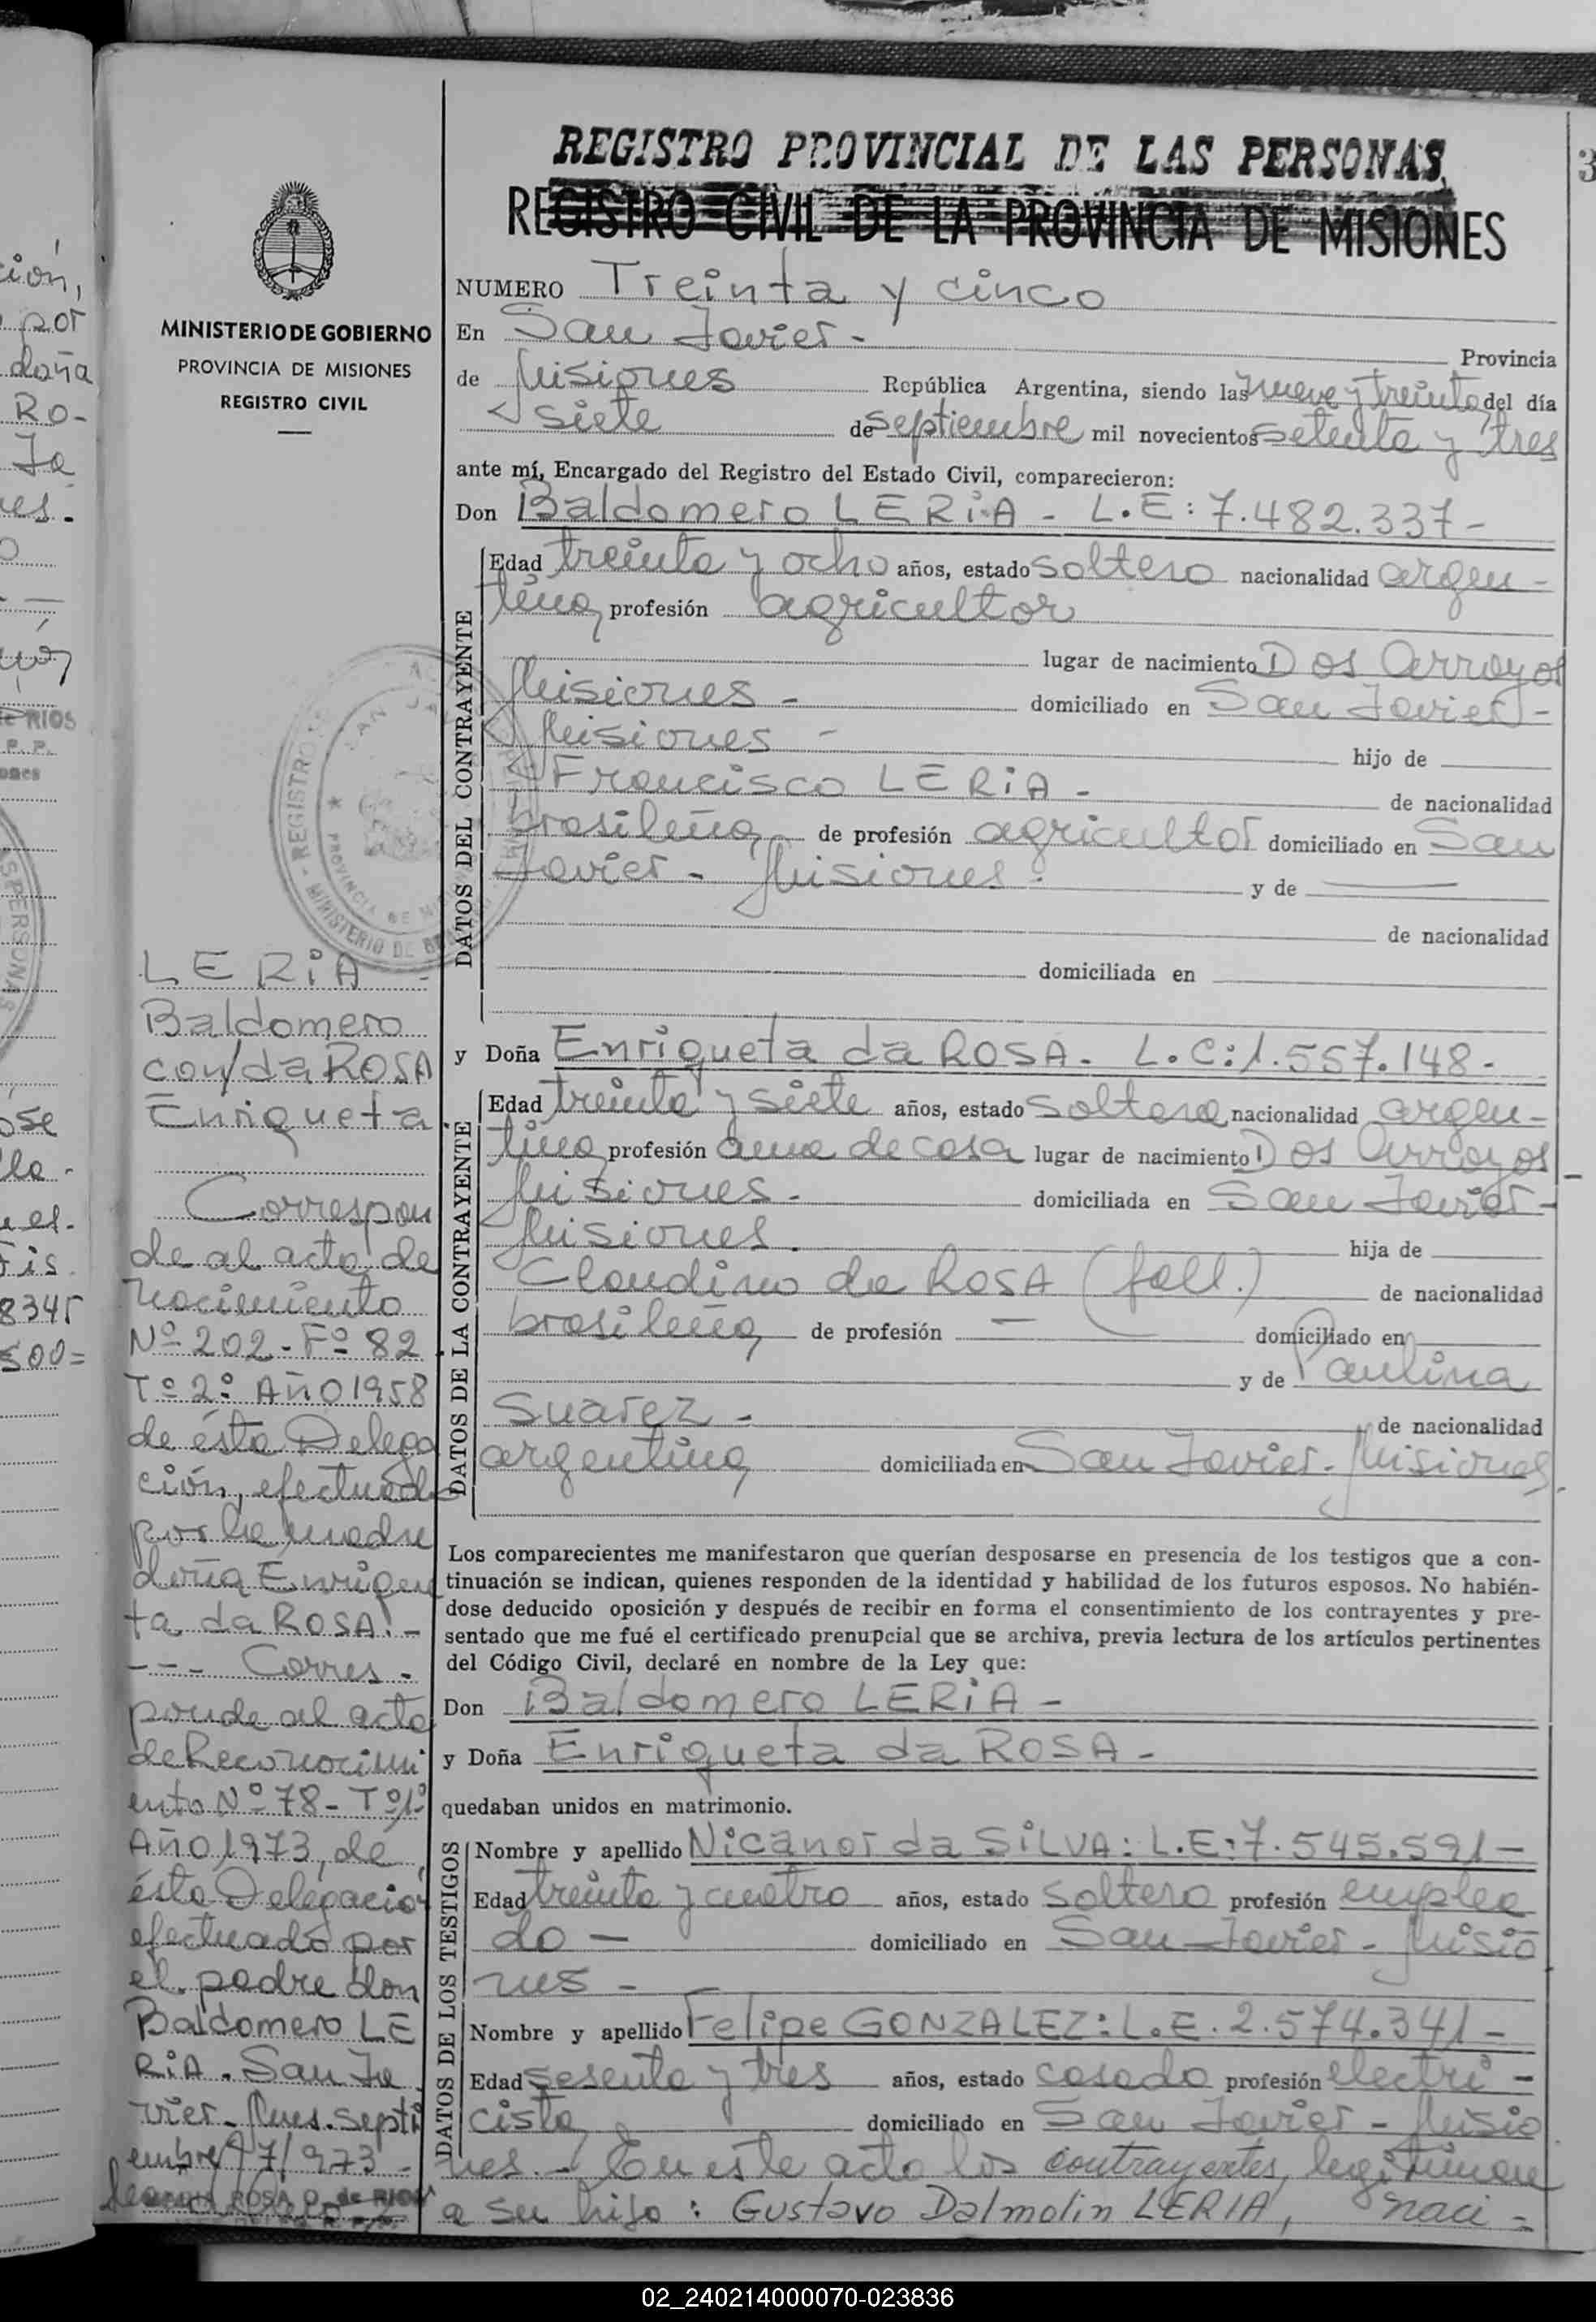 ción,
por
doña
RO-
Ja
es.-
de RIOS
P. P.
ones
la-
el-
8345
500=
MINISTERIO DE GOBIERNO
PROVINCIA DE MISIONES
REGISTRO CIVIL
LERiA -
Baldomero
con/da ROSA
Enriqueta
Correspon
de al acta de
Nacimiento
Nº 202-Fº 82
Tº 2º Año 1958
de ésta Delega
ción, efectuada
por la madre
doña Enrique
ta da ROSA.-
--- Corres-
ponde al acta
de Reconocimi
ento Nº 78- Tº 1º
Año 1973, de
ésta Delegación
efectuado por
el padre don
Baldomero LE
RiA. San Ja
vier- Mnes. septi
embre 7/973-
ROSA O. de RIOS
REGISTRO PROVINCIAL DE LAS PERSONAS
3
REGISTRO CIVIL DE LA PROVINCIA DE MISIONES
NUMERO Treinta y cinco
En San Javier- Provincia
de Misiones República Argentina, siendo las nueve y treinta del día
siete de septiembre mil novecientos setenta y tres
ante mí, Encargado del Registro del Estado Civil, comparecieron:
Don Baldomero LERiA - L.E: 7.482.337-
DATOS DEL CONTRAYENTE
Edad treinta y ocho años, estado soltero nacionalidad argen-
tina profesión agricultor
lugar de nacimiento Dos Arroyos
Misiones - domiciliado en San Javier-
Misiones - hijo de
Francisco LERiA - de nacionalidad
brasileña de profesión agricultor domiciliado en San
Javier - Misiones. y de
de nacionalidad
domiciliada en
y Doña Enriqueta da ROSA- L.C: 1.557.148-
DATOS DE LA CONTRAYENTE
Edad treinta y siete años, estado soltera nacionalidad argen-
tina profesión ama de casa lugar de nacimiento Dos Arroyos-
Misiones- domiciliada en San Javier-
Misiones. hija de
Claudino da ROSA (fall.) de nacionalidad
brasileña de profesión — domiciliado en
y de Paulina
Suarez - de nacionalidad
argentina domiciliada en San Javier- Misiones.
Los comparecientes me manifestaron que querían desposarse en presencia de los testigos que a con-
tinuación se indican, quienes responden de la identidad y habilidad de los futuros esposos. No habién-
dose deducido oposición y después de recibir en forma el consentimiento de los contrayentes y pre-
sentado que me fué el certificado prenupcial que se archiva, previa lectura de los artículos pertinentes
del Código Civil, declaré en nombre de la Ley que:
Don Baldomero LERiA -
y Doña Enriqueta da ROSA -
quedaban unidos en matrimonio.
DATOS DE LOS TESTIGOS
Nombre y apellido Nicanor da SiLVA: L.E: 7.545.591-
Edad treinta y cuatro años, estado soltero profesión emplea
do - domiciliado en San Javier- Misio
nes -
Nombre y apellido Felipe GONZALEZ: L.E. 2.574.341-
Edad sesenta y tres años, estado casado profesión electri-
cista domiciliado en San Javier- Misio
nes.- En este acto los contrayentes, legitiman
a su hijo: Gustavo Dalmolin LERIA, naci-
02_240214000070-023836